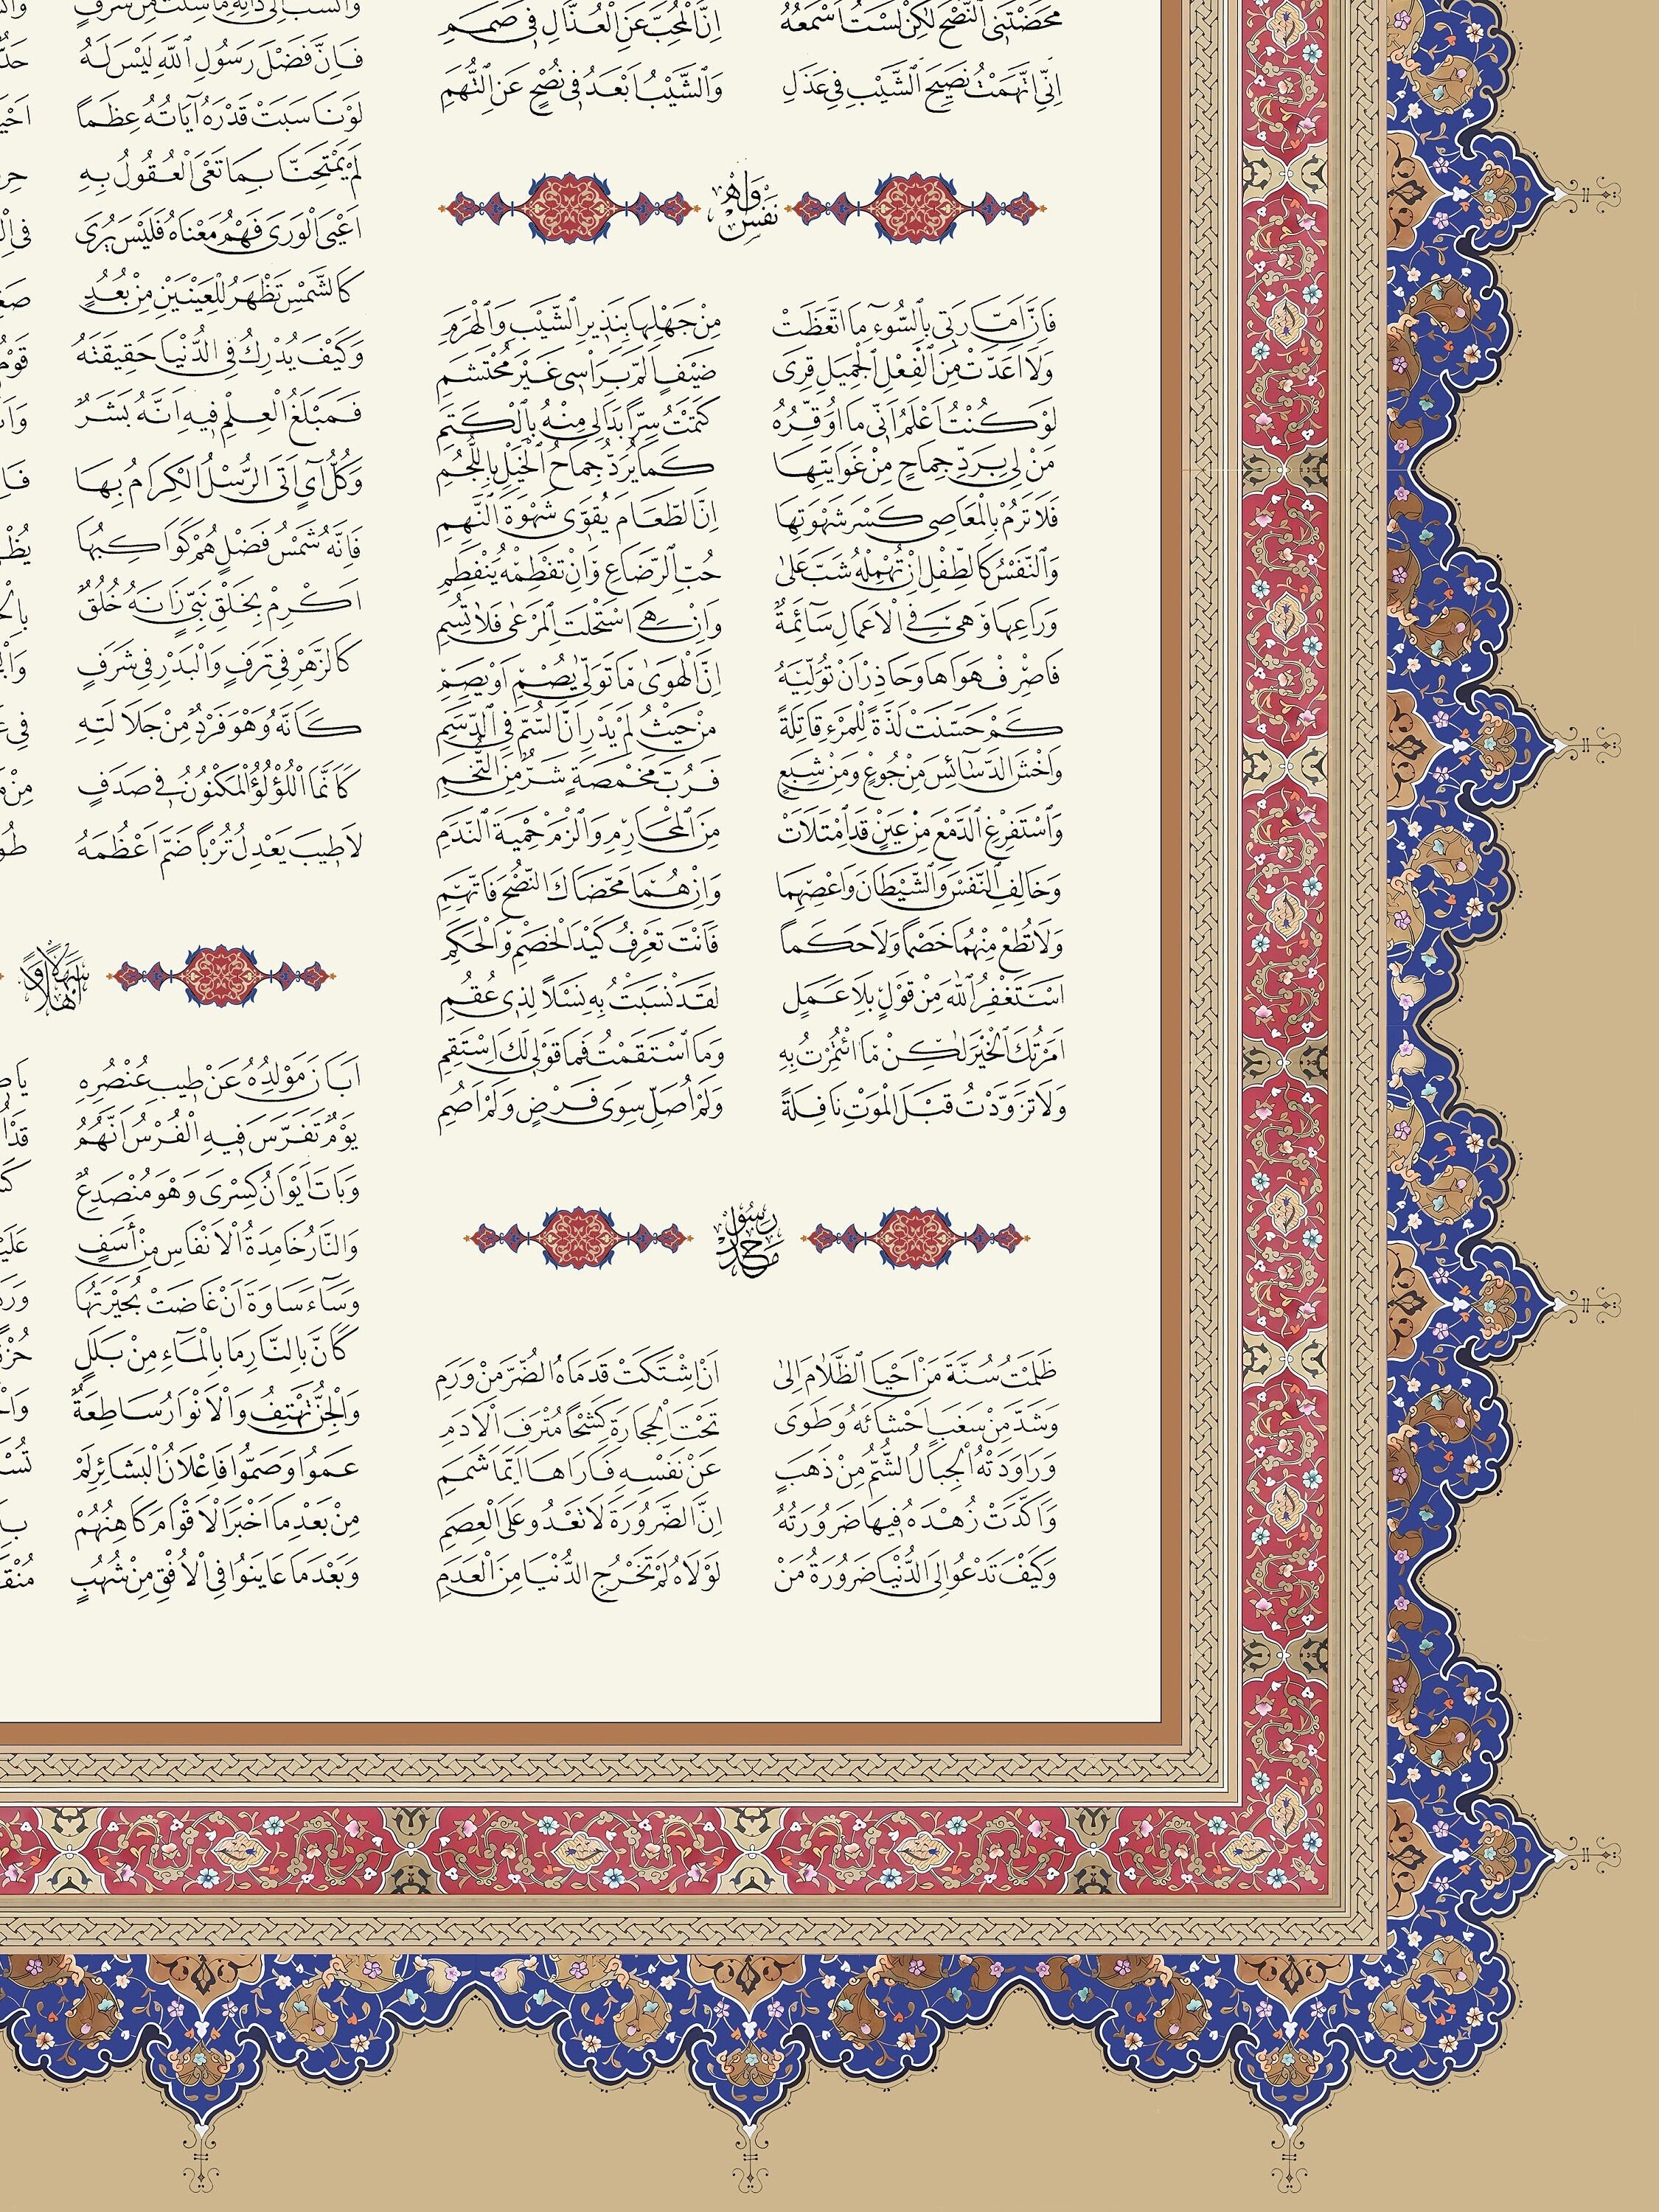 مَحَضْتَنِي النُّصْحَ لٰكِنْ لَسْتُ أَسْمَعُهُ اِنَّ الْمُحِبَّ عَنِ الْعُذَّالِ فِي صَمَمِ
اِنِّي اتَّهَمْتُ نَصِيحَ الشَّيْبِ فِي عَذَلِ وَالشَّيْبُ اَبْعَدُ فِي نُصْحٍ عَنِ التُّهَمِ
نَفْسْ وَاهَرْ
فَاِنَّ اَمَّارَتِي بِالسُّوۤءِ مَا اتَّعَظَتْ مِنْ جَهْلِهَا بِنَذِيرِ الشَّيْبِ وَالْهَرَمِ
وَلَا اَعَدَّتْ مِنَ الْفِعْلِ الْجَمِيلِ قِرَى ضَيْفٍ اَلَمَّ بِرَاْسِي غَيْرَ مُحْتَشِمِ
لَوْ كُنْتُ اَعْلَمُ اَنِّي مَا اُوَقِّرُهُ كَتَمْتُ سِرًّا بَدَا لِي مِنْهُ بِالْكَتَمِ
مَنْ لِي بِرَدِّ جِمَاحٍ مِنْ غَوَايَتِهَا كَمَا يُرَدُّ جِمَاحُ الْخَيْلِ بِاللُّجُمِ
فَلَا تَرُمْ بِالْمَعَاصِي كَسْرَ شَهْوَتِهَا اِنَّ الطَّعَامَ يُقَوِّي شَهْوَةَ النَّهِمِ
وَالنَّفْسُ كَالطِّفْلِ اِنْ تُهْمِلْهُ شَبَّ عَلٰى حُبِّ الرَّضَاعِ وَاِنْ تَفْطِمْهُ يَنْفَطِمِ
وَرَاعِهَا وَهْيَ فِي الْاَعْمَالِ سَآئِمَةٌ وَاِنْ هِيَ اسْتَحْلَتِ الْمَرْعٰى فَلَا تُسِمِ
فَاصْرِفْ هَوَاهَا وَحَاذِرْ اَنْ تُوَلِّيَهُ اِنَّ الْهَوٰى مَا تَوَلّٰى يُصْمِ اَوْ يَصِمِ
كَمْ حَسَّنَتْ لَذَّةً لِلْمَرْءِ قَاتِلَةً مِنْ حَيْثُ لَمْ يَدْرِ اَنَّ السُّمَّ فِي الدَّسَمِ
وَاخْشَ الدَّسَآئِسَ مِنْ جُوعٍ وَمِنْ شِبَعٍ فَرُبَّ مَخْمَصَةٍ شَرٌّ مِنَ التُّخَمِ
وَاسْتَفْرِغِ الدَّمْعَ مِنْ عَيْنٍ قَدِ امْتَلَاَتْ مِنَ الْمَحَارِمِ وَالْزَمْ حِمْيَةَ النَّدَمِ
وَخَالِفِ النَّفْسَ وَالشَّيْطَانَ وَاعْصِهِمَا وَاِنْ هُمَا مَحَّضَاكَ النُّصْحَ فَاتَّهِمِ
وَلَا تُطِعْ مِنْهُمَا خَصْمًا وَلَا حَكَمًا فَاَنْتَ تَعْرِفُ كَيْدَ الْخَصْمِ وَالْحَكَمِ
اَسْتَغْفِرُ اللّٰهَ مِنْ قَوْلٍ بِلَا عَمَلٍ لَقَدْ نَسَبْتُ بِهِ نَسْلًا لِذِي عُقُمِ
اَمَرْتُكَ الْخَيْرَ لٰكِنْ مَا ائْتَمَرْتُ بِهِ وَمَا اسْتَقَمْتُ فَمَا قَوْلِي لَكَ اسْتَقِمِ
وَلَا تَزَوَّدْتُ قَبْلَ الْمَوْتِ نَافِلَةً وَلَمْ اُصَلِّ سِوَى فَرْضٍ وَلَمْ اَصُمِ
مُحَمَّدْ رَسُولْ
ظَلَمْتُ سُنَّةَ مَنْ اَحْيَا الظَّلَامَ اِلٰى اَنْ اِشْتَكَتْ قَدَمَاهُ الضُّرَّ مِنْ وَرَمِ
وَشَدَّ مِنْ سَغَبٍ اَحْشَائَهُ وَطَوَى تَحْتَ الْحِجَارَةِ كَشْحًا مُتْرَفَ الْاَدَمِ
وَرَاوَدَتْهُ الْجِبَالُ الشُّمُّ مِنْ ذَهَبٍ عَنْ نَفْسِهِ فَاَرَاهَا اَيَّمَا شَمَمِ
وَاَكَّدَتْ زُهْدَهُ فِيهَا ضَرُورَتُهُ اِنَّ الضَّرُورَةَ لَا تَعْدُو عَلَى الْعِصَمِ
وَكَيْفَ تَدْعُو اِلَى الدُّنْيَا ضَرُورَةُ مَنْ لَوْلَاهُ لَمْ تَخْرُجِ الدُّنْيَا مِنَ الْعَدَمِ
فَاِنَّ فَضْلَ رَسُولِ اللّٰهِ لَيْسَ لَهُ
لَوْ نَاسَبَتْ قَدْرَهُ آيَاتُهُ عِظَمًا
لَمْ يَمْتَحِنَّا بِمَا تَعْيَ الْعُقُولُ بِهِ
اَعْيَى الْوَرَى فَهْمُ مَعْنَاهُ فَلَيْسَ يُرَى
كَالشَّمْسِ تَظْهَرُ لِلْعَيْنَيْنِ مِنْ بُعُدٍ
وَكَيْفَ يُدْرِكُ فِي الدُّنْيَا حَقِيقَتَهُ
فَمَبْلَغُ الْعِلْمِ فِيهِ اَنَّهُ بَشَرٌ
وَكُلُّ آيٍ اَتَى الرُّسْلُ الْكِرَامُ بِهَا
فَاِنَّهُ شَمْسُ فَضْلٍ هُمْ كَوَاكِبُهَا
اَكْرِمْ بِخَلْقِ نَبِيٍّ زَانَهُ خُلُقٌ
كَالزَّهْرِ فِي تَرَفٍ وَالْبَدْرِ فِي شَرَفٍ
كَاَنَّهُ وَهْوَ فَرْدٌ مِنْ جَلَالَتِهِ
كَاَنَّمَا اللُّؤْلُؤُ الْمَكْنُونُ فِي صَدَفٍ
لَا طِيبَ يَعْدِلُ تُرْبًا ضَمَّ اَعْظُمَهُ
اَبَانَ مَوْلِدُهُ عَنْ طِيبِ عُنْصُرِهِ
يَوْمٌ تَفَرَّسَ فِيهِ الْفُرْسُ اَنَّهُمُ
وَبَاتَ اَيْوَانُ كِسْرَى وَهْوَ مُنْصَدِعٌ
وَالنَّارُ خَامِدَةُ الْاَنْفَاسِ مِنْ أَسَفٍ
وَسَآءَ سَاوَةَ اَنْ غَاضَتْ بُحَيْرَتُهَا
كَاَنَّ بِالنَّارِ مَا بِالْمَآءِ مِنْ بَلَلٍ
وَالْجِنُّ تَهْتِفُ وَالْاَنْوَارُ سَاطِعَةٌ
عَمُوا وَصَمُّوا فَاِعْلَانُ الْبَشَائِرِ لَمْ
مِنْ بَعْدِ مَا اَخْبَرَ الْاَقْوَامَ كَاهِنُهُمْ
وَبَعْدَ مَا عَايَنُوا فِي الْاُفْقِ مِنْ شُهُبٍ